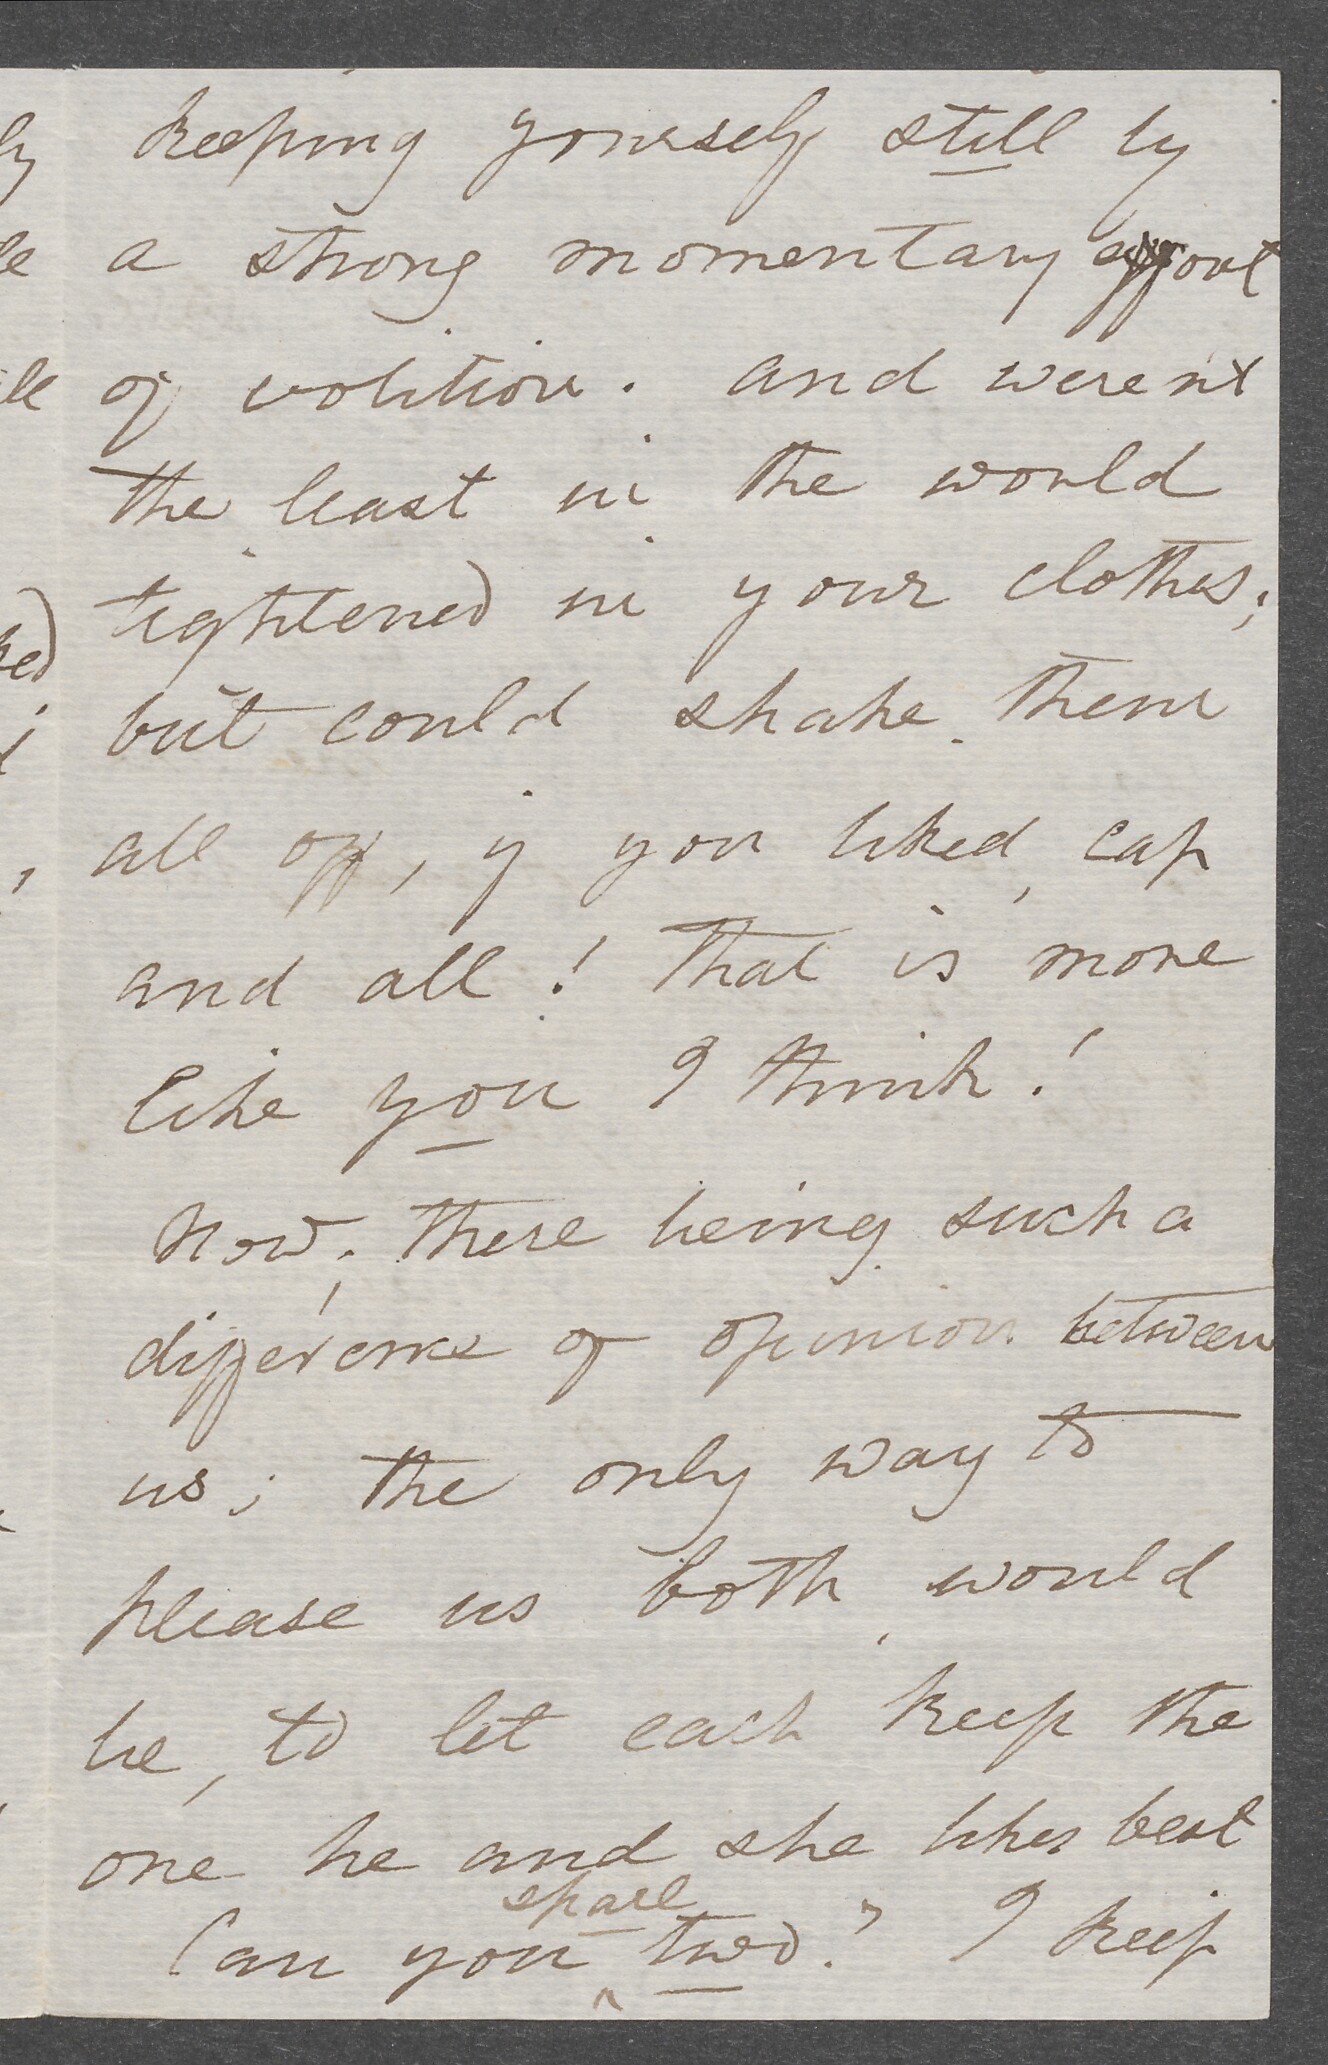 keeping yourself still by
a strong momentary effort
of volition. and weren't
the least in the world
tightened in your clothes;
but could shake them
all off, if you liked, cap
and all! That is more
like you I think!
Now, there being such a
difference of opinion between
us; the only way to
please us both, would
be, to let each keep the
one he and she likes best
spare
Can you ^ two? I keep